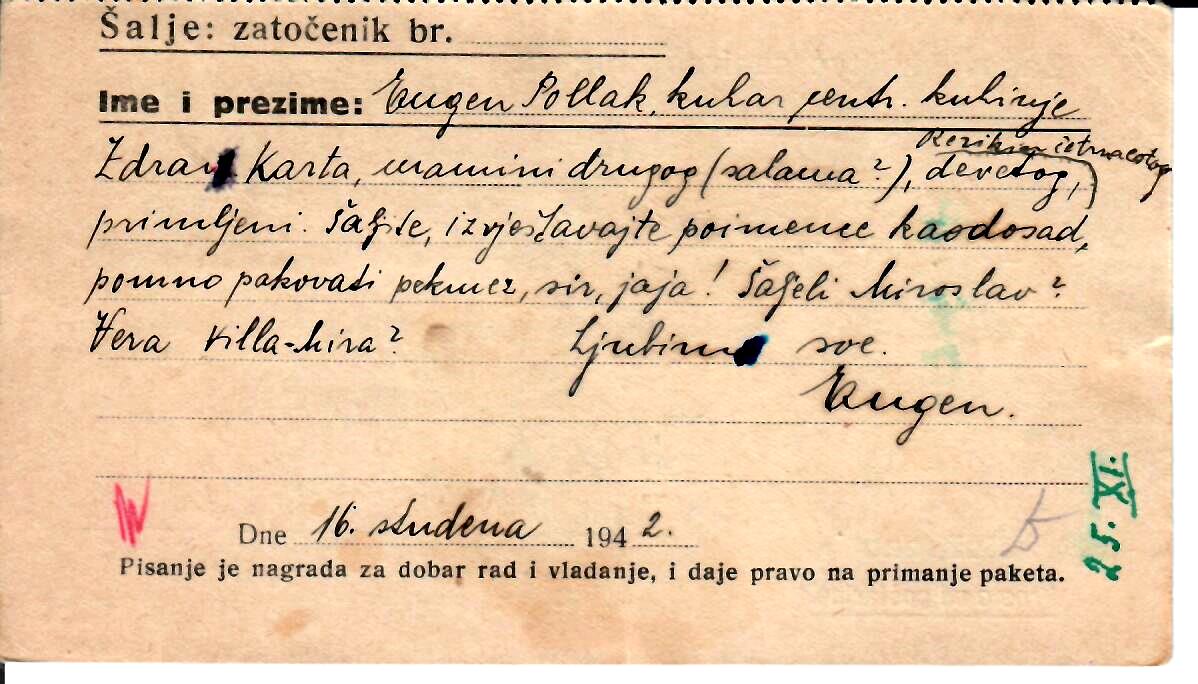 Šalje: zatočenik br.
Ime i prezime: Eugen Pollak, kuhar centr. kuhinje
četrnaestog
Zdrav Karta, mamini drugog (salama?), devetog,
primljeni. Šaljite, izvještavajte poimence kaodosad,
pomno pakovati pekmez, sir, jaja! Šaljeli Miroslav?
Vera Villa-Mira? Ljubim sve.
Eugen.
25. XI.
Dne 16. studena 1942.
Pisanje je nagrada za dobar rad i vladanje, i daje pravo na primanje paketa.